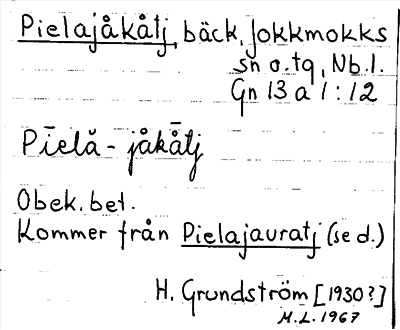 Pielajåkåtj, bäck, Jokkmokks
sn o. tg, Nb. l.
Gn 13 a 1 : 12
Pīelă - jåkå̄tj
Obek. bet.
Kommer från Pielajauratj (se d.)
H. Grundström [1930?]
M.L. 1967